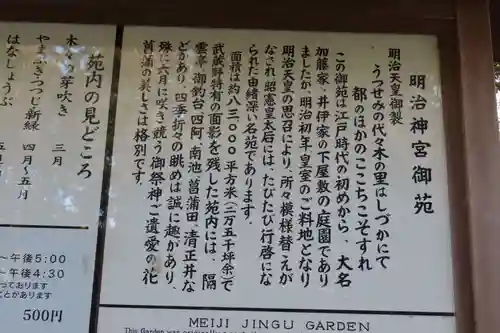 明治神宮御苑
明治天皇御製
うつせみの代々木の里はしづかにて
都のほかのここちこそすれ
この御苑は江戸時代の初めから、大名
加藤家、井伊家の下屋敷の庭園であり
ましたが、明治初年皇室のご料地となり
明治天皇の思召により、所々模様替えが
なされ昭憲皇太后には、たびたび行啓にな
られた由緒深い名苑であります。
面積は約八三〇〇〇平方米(二万五千坪余)で
武蔵野特有の面影を残した苑内には、隔
雲亭、御釣台、四阿、南池、菖蒲田、清正井な
どがあり、四季折々の眺めは誠に趣があり、
殊に六月に咲き競う御祭神ご遺愛の花
菖蒲の美しさは格別です。
苑内の見どころ
木々の芽吹き 三月
やまぶきつつじ新緑 四月〜五月
はなしょうぶ
〜午後5:00
〜午後4:30
ております
とがあります
500円
MEIJI JINGU GARDEN
This Garden was originally